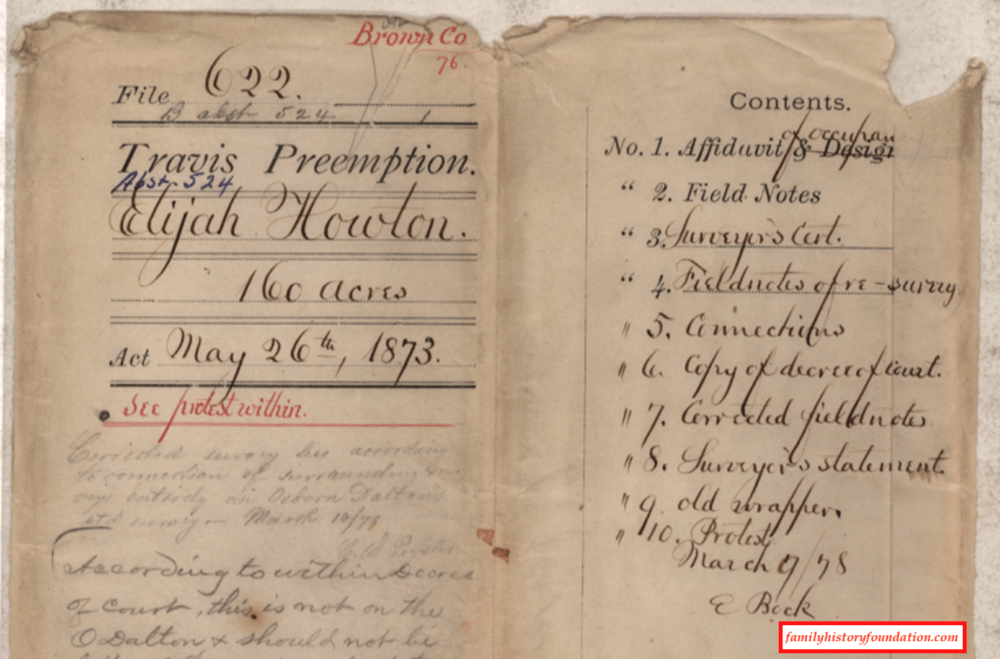 Brown Co
76.
File 622.
B abst 524
Travis Preemption.
Abst. 524
Elijah Howton.
160 acres
Act May 26th, 1873.
See protest within.
Corrected survey lies according
to connection of surrounding
entirely on Osborn Dalton's
survey - March 14/78
According to within Decree
of Court, this is not on the
O Dalton & should not be
Contents.
No. 1. Affiduvit & Design
of occupan
" 2. Field Notes
" 3. Surveyor's Cert.
" 4. Fieldnotes of re-survey.
" 5. Connections
" 6. Copy of decree of Court.
" 7. Corrected fieldnotes
" 8. Surveyor's statement.
" 9. old wrapper.
" 10. Protest,
March /78
E Beck
familyhistoryfoundation.com